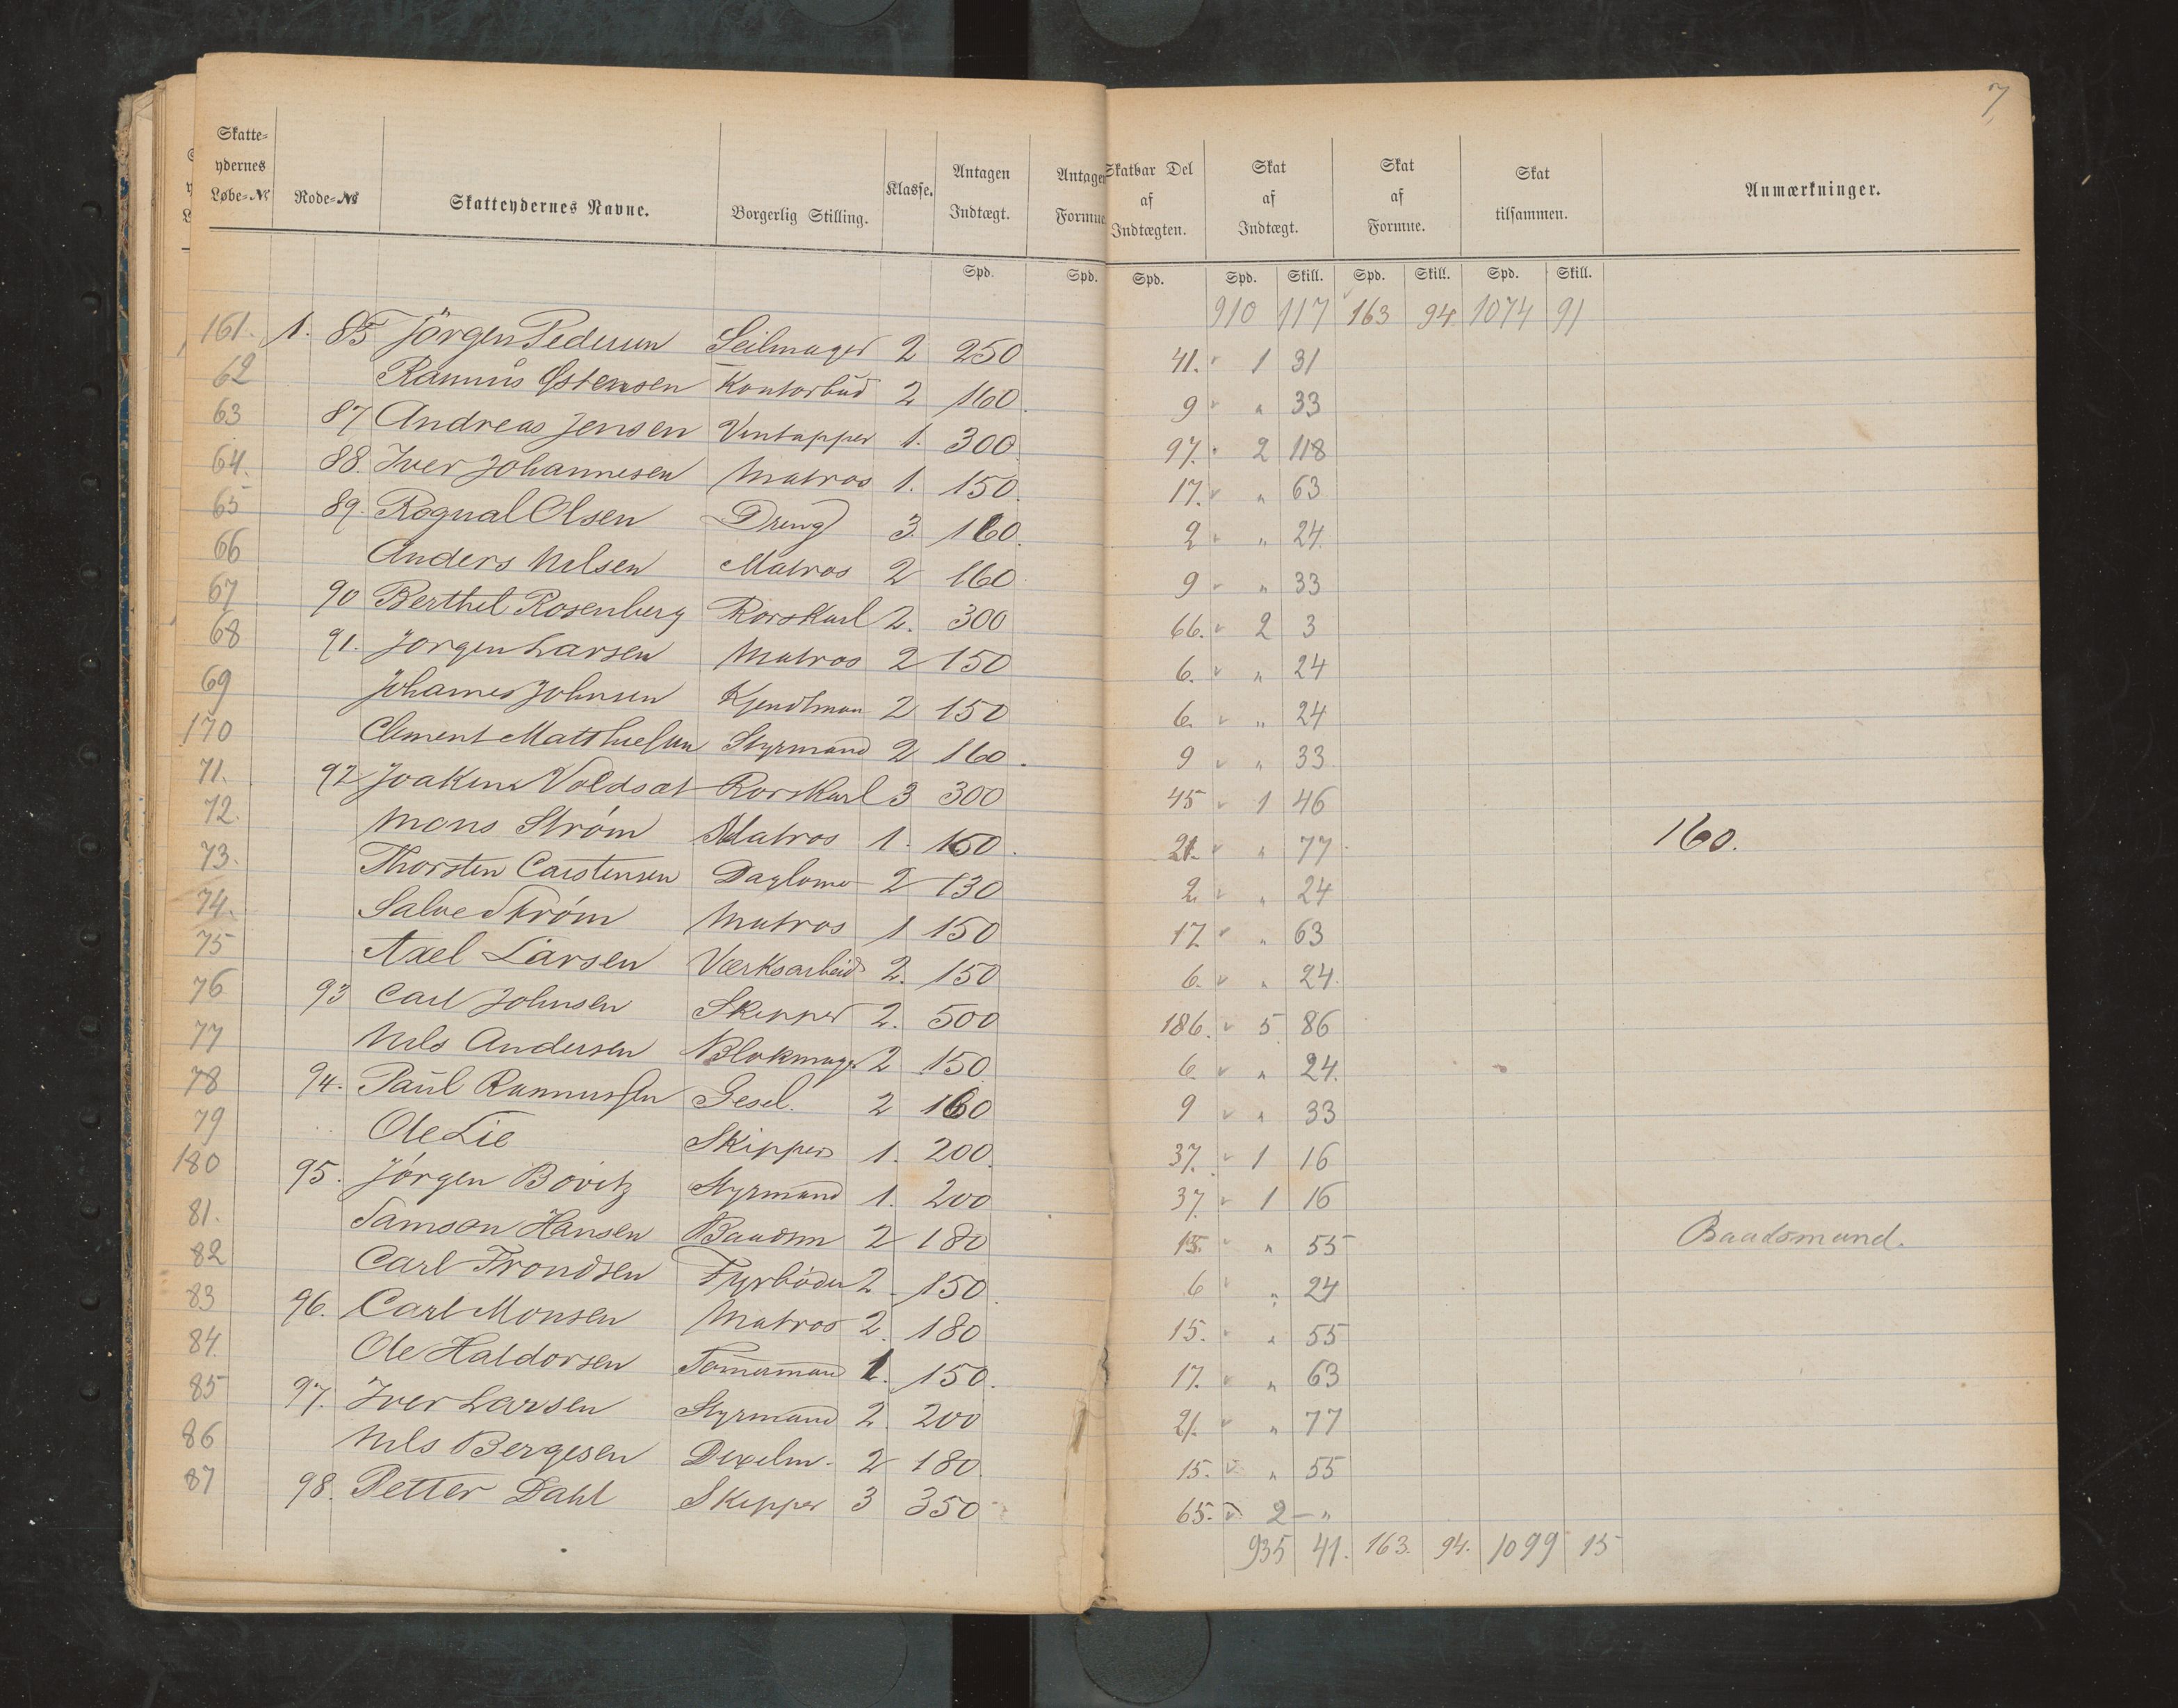 7
Skatte- ydernes Løbe-№ Rode-№ Skatteydernes Navne. Borgerlig Stilling. Klasse. Antagen Indtægt. Antagen Formue Skatbar Del af Indtægten. Skat af Indtægt. Skat af Formue. Skat tilsammen. Anmærkninger.
Spd. Spd. Spd. Spd. Skill. Spd. Skill. Spd. Skill.
910 117 163 94 1074 91
161. 1. 85 Jörgen Pedersen Seilmager 2 250 41. 1 31
62 Rasmus Østensen Kontorbud 2 160. 9 " 33
63 87 Andreas Jensen Vintapper 1. 300 97. 2 118
64. 88. Iver Johannesen Matros 1. 150. 17. " 63
65 89. Rognal Olsen Dreng 3. 160. 2 " 24.
66 Anders Nilsen Matros 2 160 9 " 33
67 90 Berthel Rosenberg Rorskarl 2. 300 66. 2 3
68 91. Jörgen Larsen Matros 2 150 6. " 24
69 Johannes Johnsen Kjendtman 2 150 6. " 24
170 Clement Matthiesen Styrmand 2 160. 9 " 33.
71. 92 Joakim Voldsat Rorskarl 3 300 45 1 46
72. Mons Strøm Matros 1. 160. 21. " 77 160.
73. Thorsten Carstensen Daglønner 2 130 2 " 24
74. Salve Strøm Matros 1 150 17 " 63
75 Axel Larsen Værksarbeid 2. 150 6. " 24.
76 93 Carl Johnsen Skipper 2. 500 186. 5 86
77 Nils Andersen Blokmager 2 150 6. " 24.
78 94. Paul Rasmussen Gesel. 2 160 9 " 33
79 Ole Lie Skipper 1. 200. 37. 1 16
180 95. Jörgen Bovitz Styrmand 1. 200 37. 1 16
81. Samson Hansen Baadsm 2 180 15. " 55 Baadsmand.
82 Carl Trondsen Fyrbøder 2 150. 6 " 24
83 96. Carl Monsen Matros 2. 180 15. " 55
84. Ole Haldorsen Tømermand 1. 150. 17. " 63
85 97. Iver Larsen Styrmand 2. 200 21. " 77
86 Nils Bergesen Dexelm. 2 180. 15. " 55
87 98. Petter Dahl Skipper 3 350 65. 2 - "
935 41. 163. 94. 1099 15